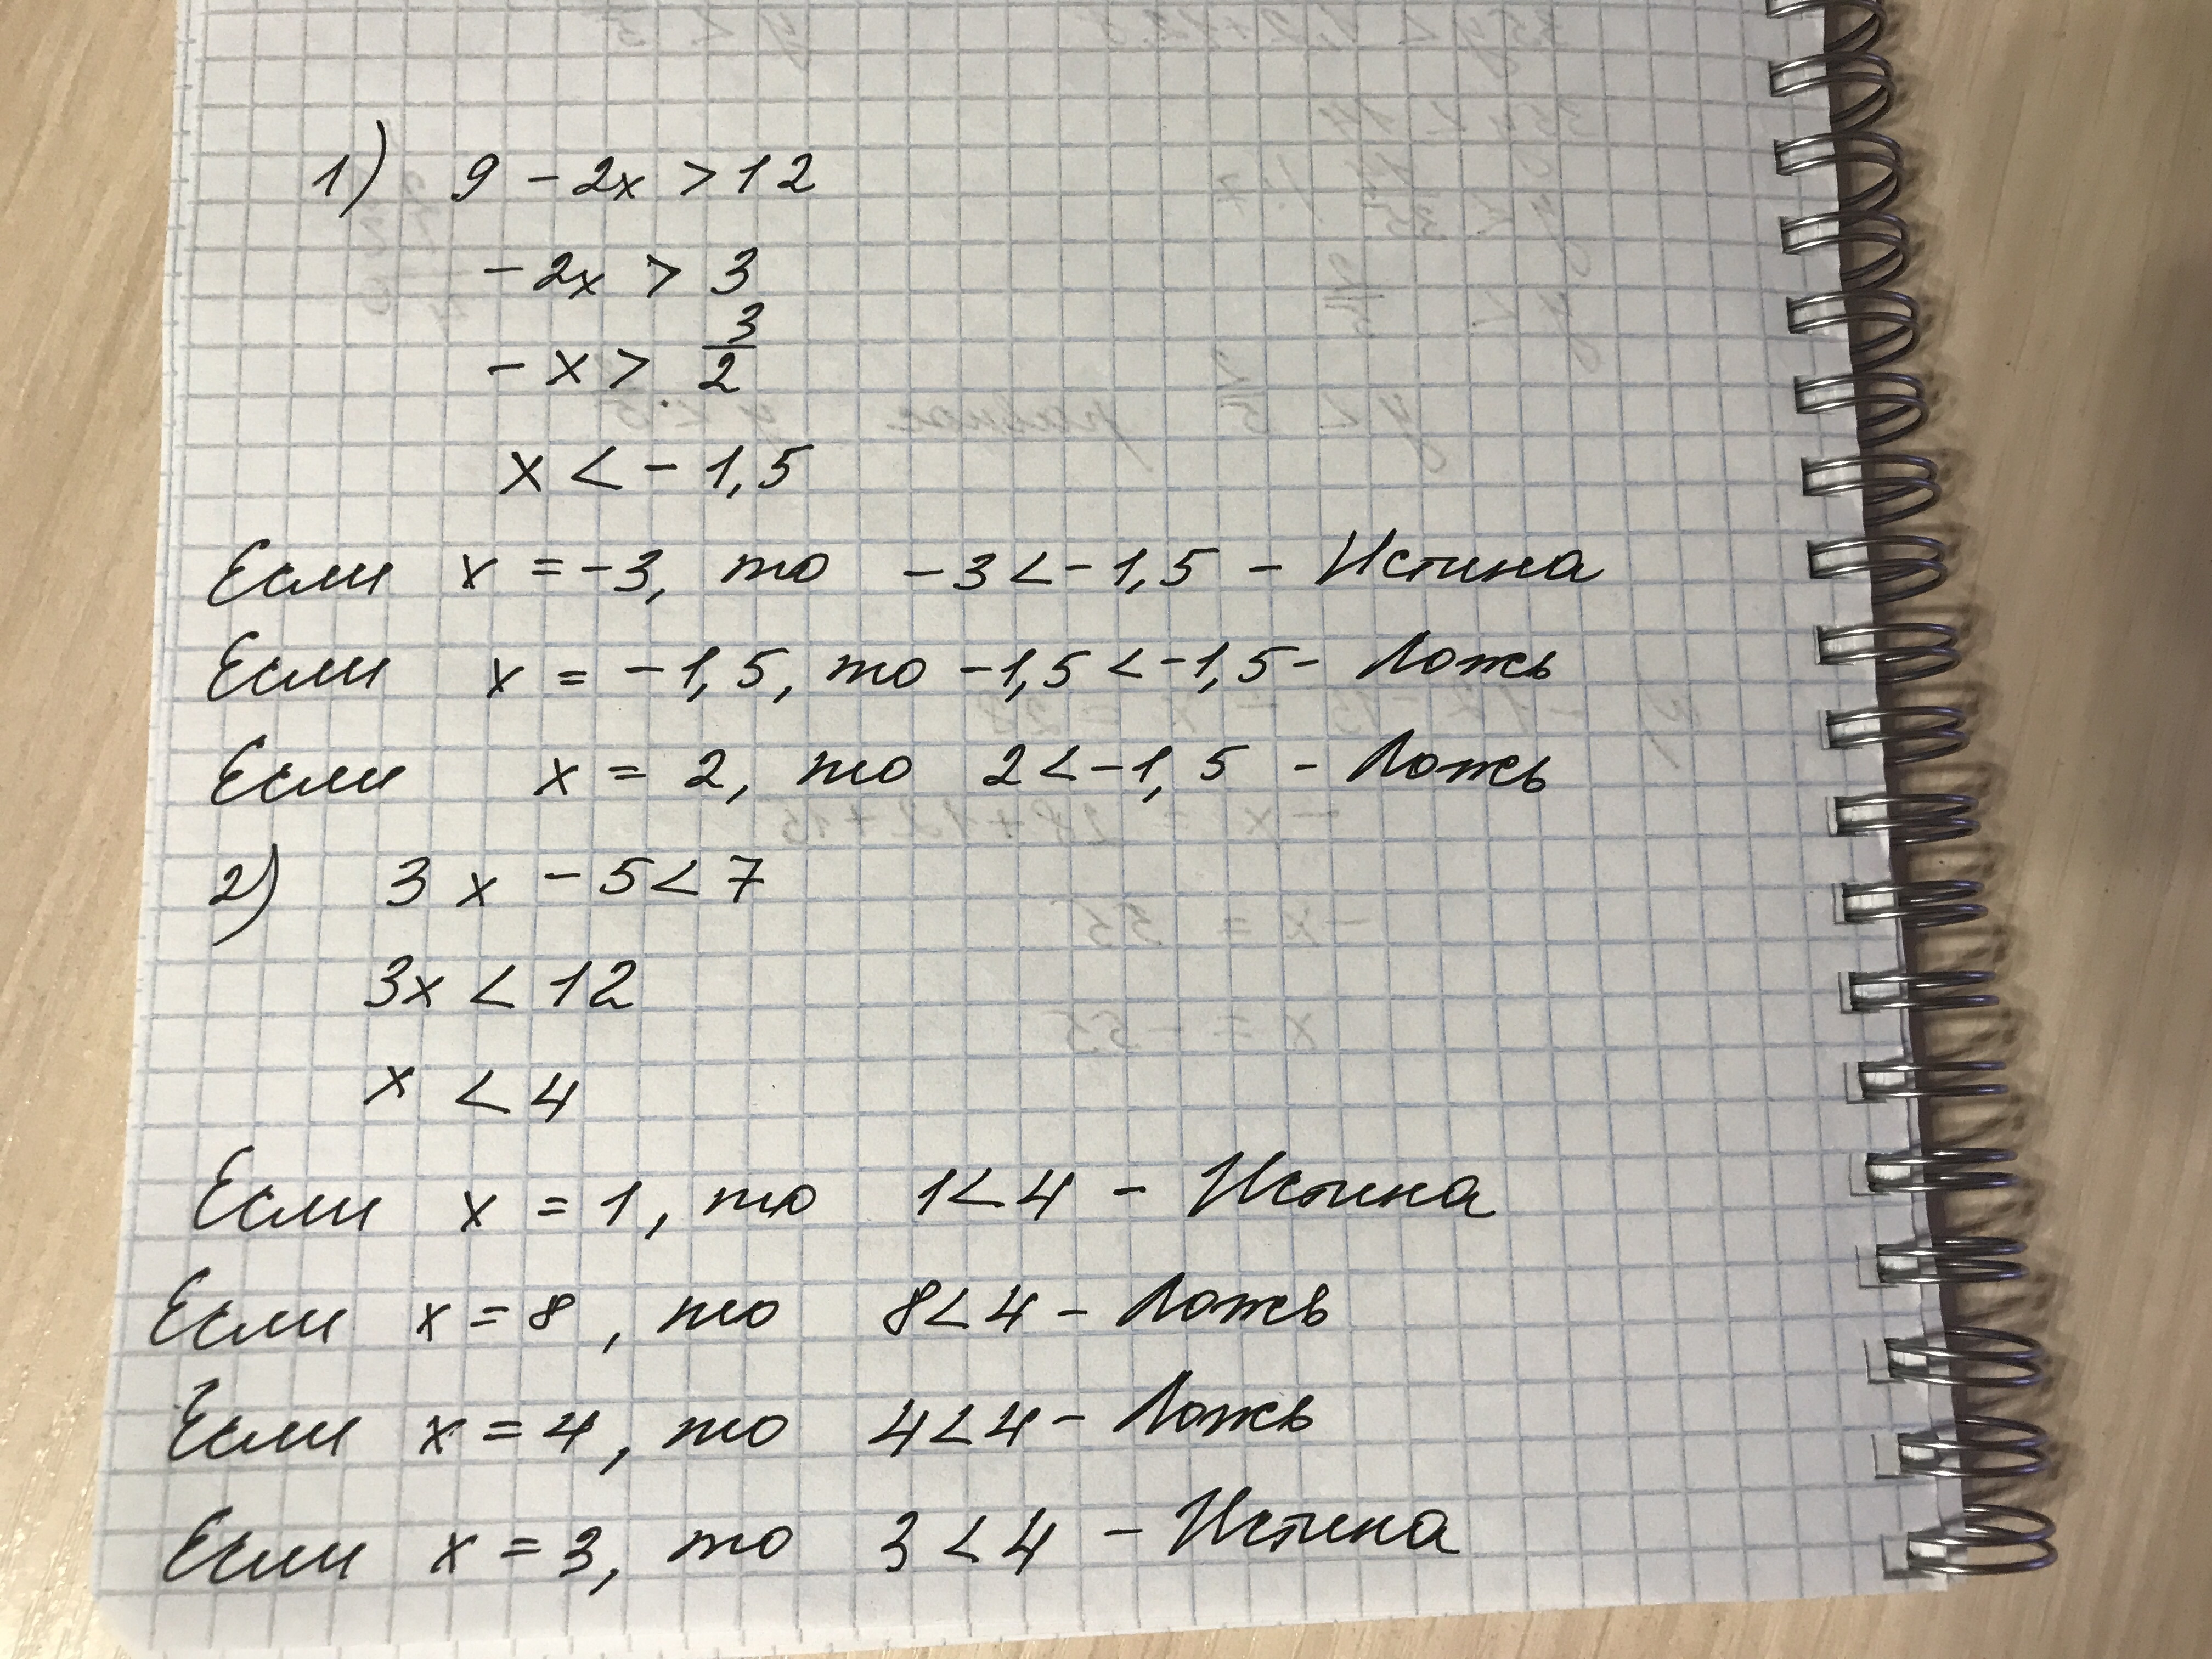 1) 9 - 2x > 12
-2x > 3
-x > 3/2
x < -1,5
Если x = -3, то -3 < -1,5 - Истина
Если x = -1,5, то -1,5 < -1,5 - Ложь
Если x = 2, то 2 < -1,5 - Ложь
2) 3x - 5 < 7
3x < 12
x < 4
Если x = 1, то 1 < 4 - Истина
Если x = 8, то 8 < 4 - Ложь
Если x = 4, то 4 < 4 - Ложь
Если x = 3, то 3 < 4 - Истина